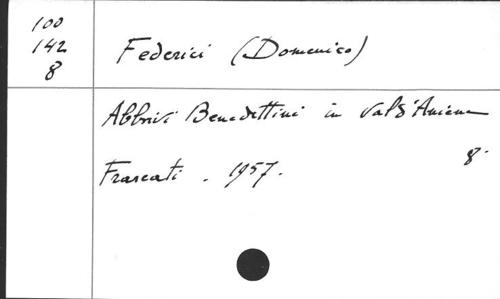 100
142
8
Federici (Domenico)
Abbrivi Benedettini in Val d'Aniene
Frascati . 1957.
8.